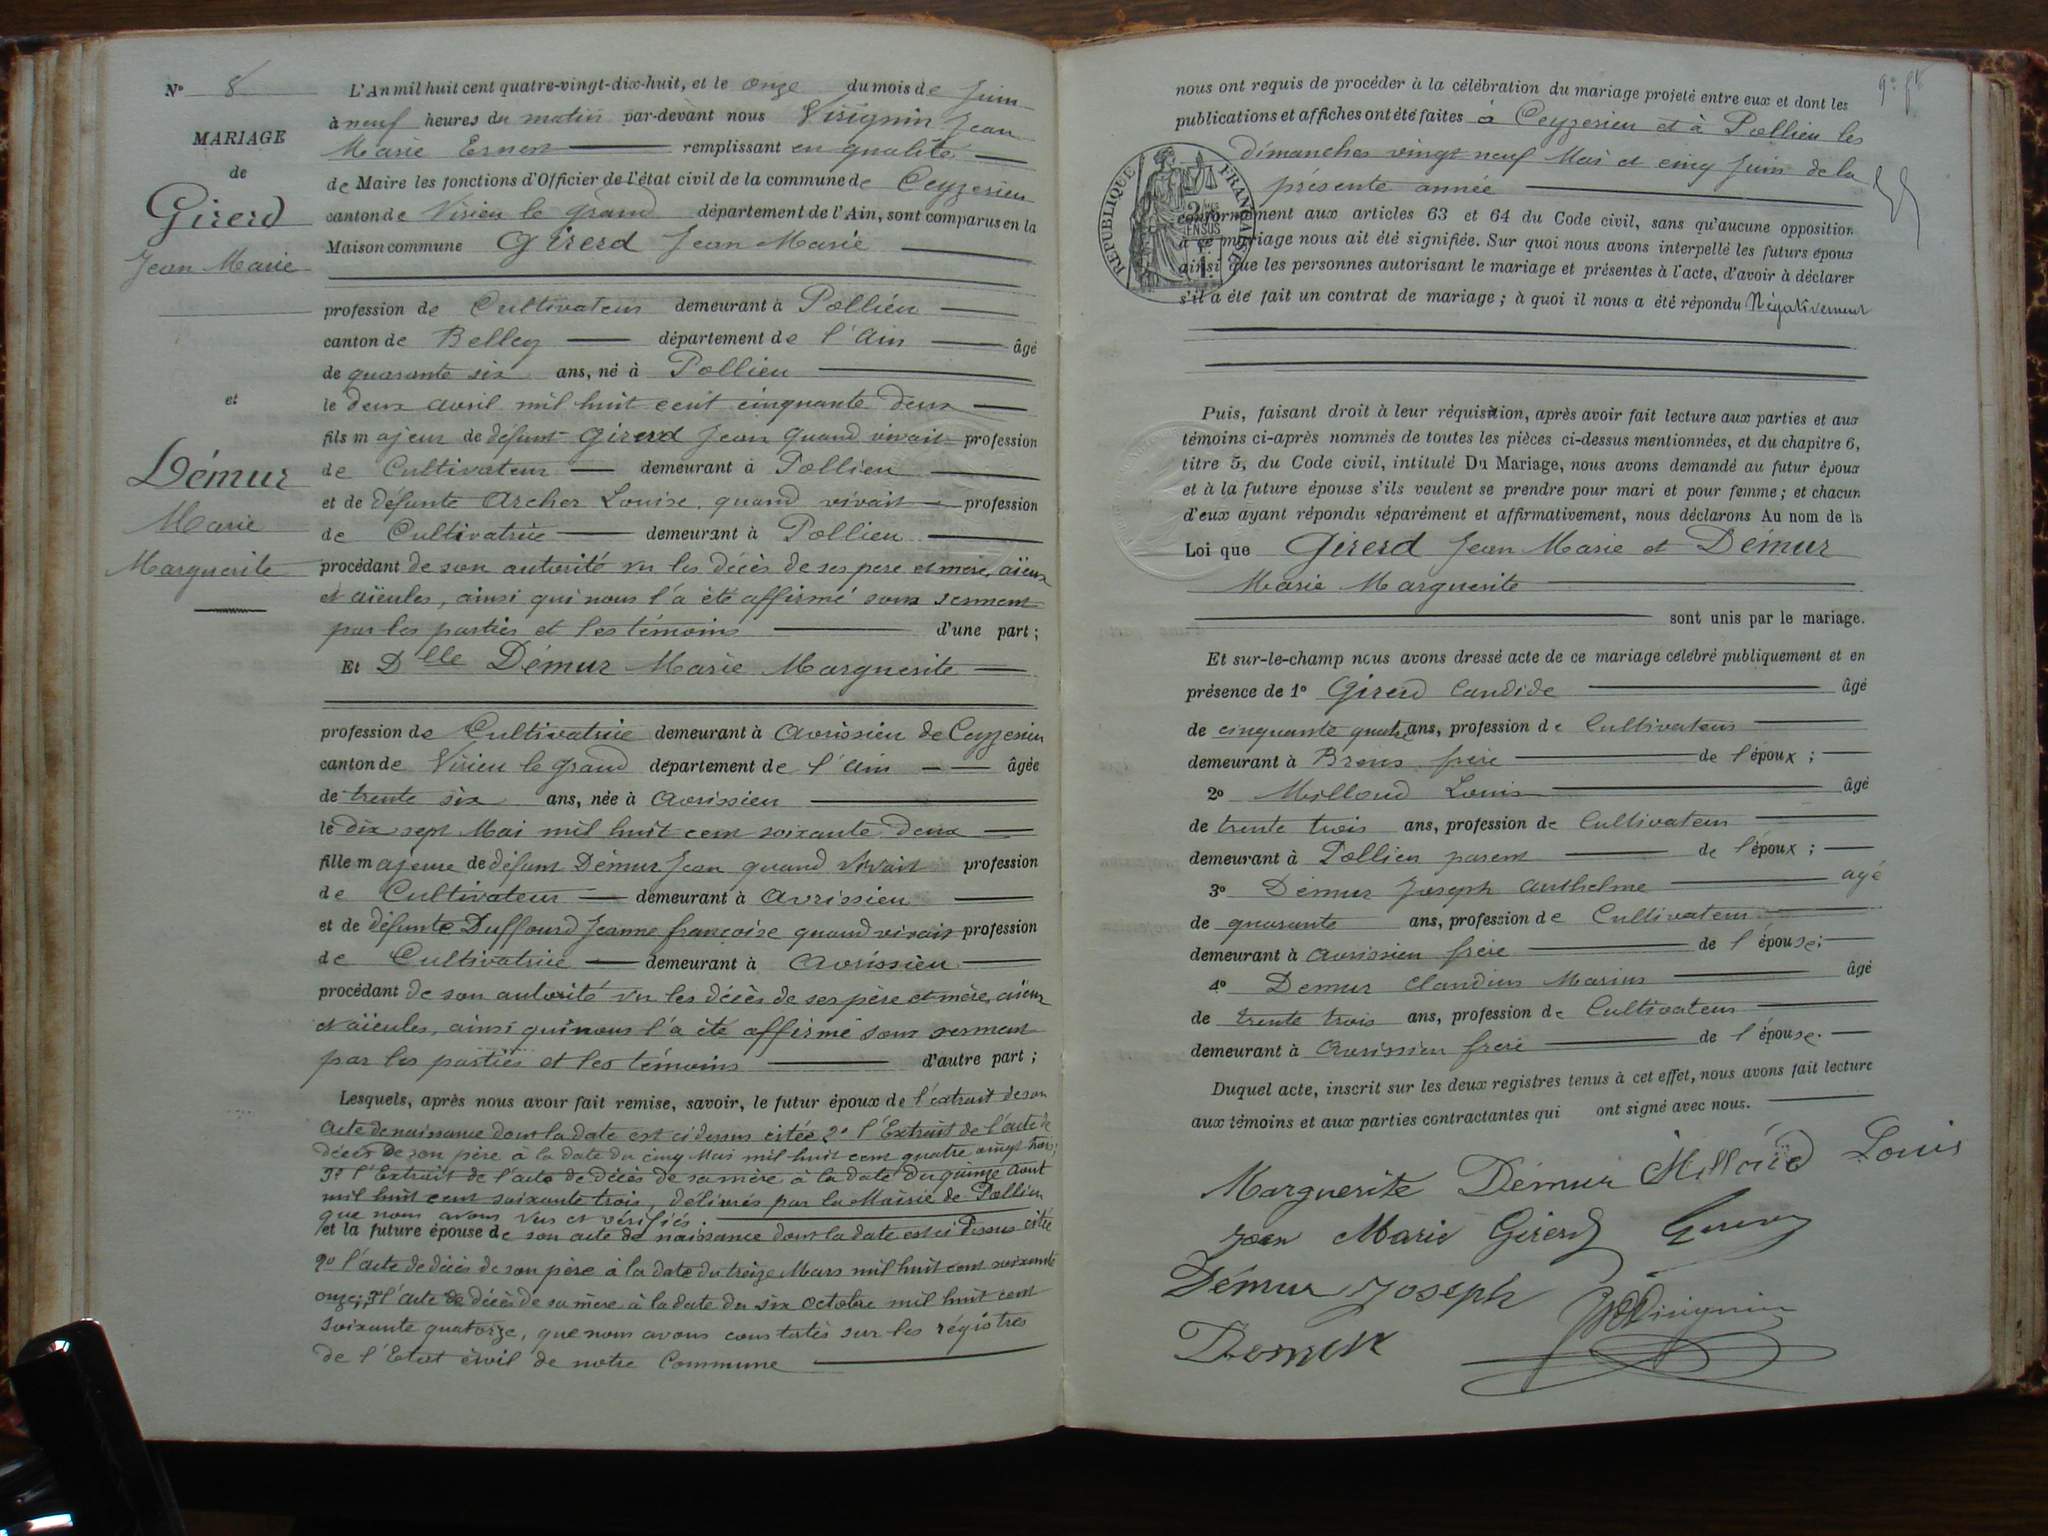 N° 8
MARIAGE
de
Girerd
Jean Marie
et
Démur
Marie
Marguerite
L'An mil huit cent quatre-vingt-dix-huit, et le onze du mois de Juin
à neuf heures du matin par-devant nous Virignin Jean
Marie Ernest remplissant en qualité
de Maire les fonctions d'Officier de l'état civil de la commune de Ceyzerieu
canton de Virieu le grand département de l'Ain, sont comparus en la
Maison commune Girerd Jean Marie
profession de Cultivateur demeurant à Pollieu
canton de Belley département de l'Ain âgé
de quarante six ans, né à Pollieu
le deux avril mil huit cent cinquante deux
fils majeur de défunt Girerd Jean quand vivait profession
de Cultivateur demeurant à Pollieu
et de défunte Archer Louise quand vivait profession
de Cultivatrice demeurant à Pollieu
procédant de son autorité vu les décès de ses père et mère, aïeux
et aïeules, ainsi qui nous l'a été affirmé sous serment
par les parties et les témoins d'une part ;
Et Dlle Démur Marie Marguerite
profession de Cultivatrice demeurant à Avrissieu de Ceyzerieu
canton de Virieu le grand département de l'Ain âgée
de trente six ans, née à Avrissieu
le dix sept Mai mil huit cent soixante deux
fille majeure de défunt Démur Jean quand vivait profession
de Cultivateur demeurant à Avrissieu
et de défunte Duffourd Jeanne françoise quand vivait profession
de Cultivatrice demeurant à Avrissieu
procédant de son autorité vu les décès de ses père et mère, aïeux
et aïeules, ainsi qui nous l'a été affirmé sous serment
par les parties et les témoins d'autre part ;
Lesquels, après nous avoir fait remise, savoir, le futur époux de l'extrait de son
acte de naissance dont la date est ci dessus citée 2° l'Extrait de l'acte de
décès de son père à la date du cinq Mai mil huit cent quatre vingt trois;
3° l'Extrait de l'acte de décès de sa mère à la date du quinze Aout
mil huit cent soixante trois, délivrés par la Mairie de Pollieu
que nous avons vus et vérifiés.
et la future épouse de son acte de naissance dont la date est ci dessus citée
2° l'acte de décès de son père à la date du treize Mars mil huit cent soixante
onze; 3° l'acte de décès de sa mère à la date du six octobre mil huit cent
soixante quatorze, que nous avons constatés sur les régistres
de l'Etat civil de notre Commune
nous ont requis de procéder à la célébration du mariage projeté entre eux et dont les
publications et affiches ont été faites à Ceyzerieu et à Pollieu les
dimanches vingt neuf Mai et cinq Juin de la
présente année
RÉPUBLIQUE FRANÇAISE
conformément aux articles 63 et 64 du Code civil, sans qu'aucune opposition
à ce mariage nous ait été signifiée. Sur quoi nous avons interpellé les futurs époux
ainsi que les personnes autorisant le mariage et présentes à l'acte, d'avoir à déclarer
s'il a été fait un contrat de mariage ; à quoi il nous a été répondu Négativement
Puis, faisant droit à leur réquisition, après avoir fait lecture aux parties et aux
témoins ci-après nommés de toutes les pièces ci-dessus mentionnées, et du chapitre 6,
titre 5, du Code civil, intitulé Du Mariage, nous avons demandé au futur époux
et à la future épouse s'ils veulent se prendre pour mari et pour femme ; et chacun
d'eux ayant répondu séparément et affirmativement, nous déclarons Au nom de la
Loi que Girerd Jean Marie et Démur
Marie Marguerite
sont unis par le mariage.
Et sur-le-champ nous avons dressé acte de ce mariage célébré publiquement et en
présence de 1° Girerd Candide âgé
de cinquante quatre ans, profession de Cultivateur
demeurant à Brens frère de l'époux ;
2° Milloud Louis âgé
de trente trois ans, profession de Cultivateur
demeurant à Pollieu parent de l'époux ;
3° Démur Joseph Anthelme agé
de quarante ans, profession de Cultivateur
demeurant à Avrissieu frère de l'épouse;
4° Demur Claudius Marius âgé
de trente trois ans, profession de Cultivateur
demeurant à Avrissieu frère de l'épouse.
Duquel acte, inscrit sur les deux registres tenus à cet effet, nous avons fait lecture
aux témoins et aux parties contractantes qui ont signé avec nous.
Marguerite Démur Milloud Louis
Jean Marie Girerd
Démur Joseph
Demur